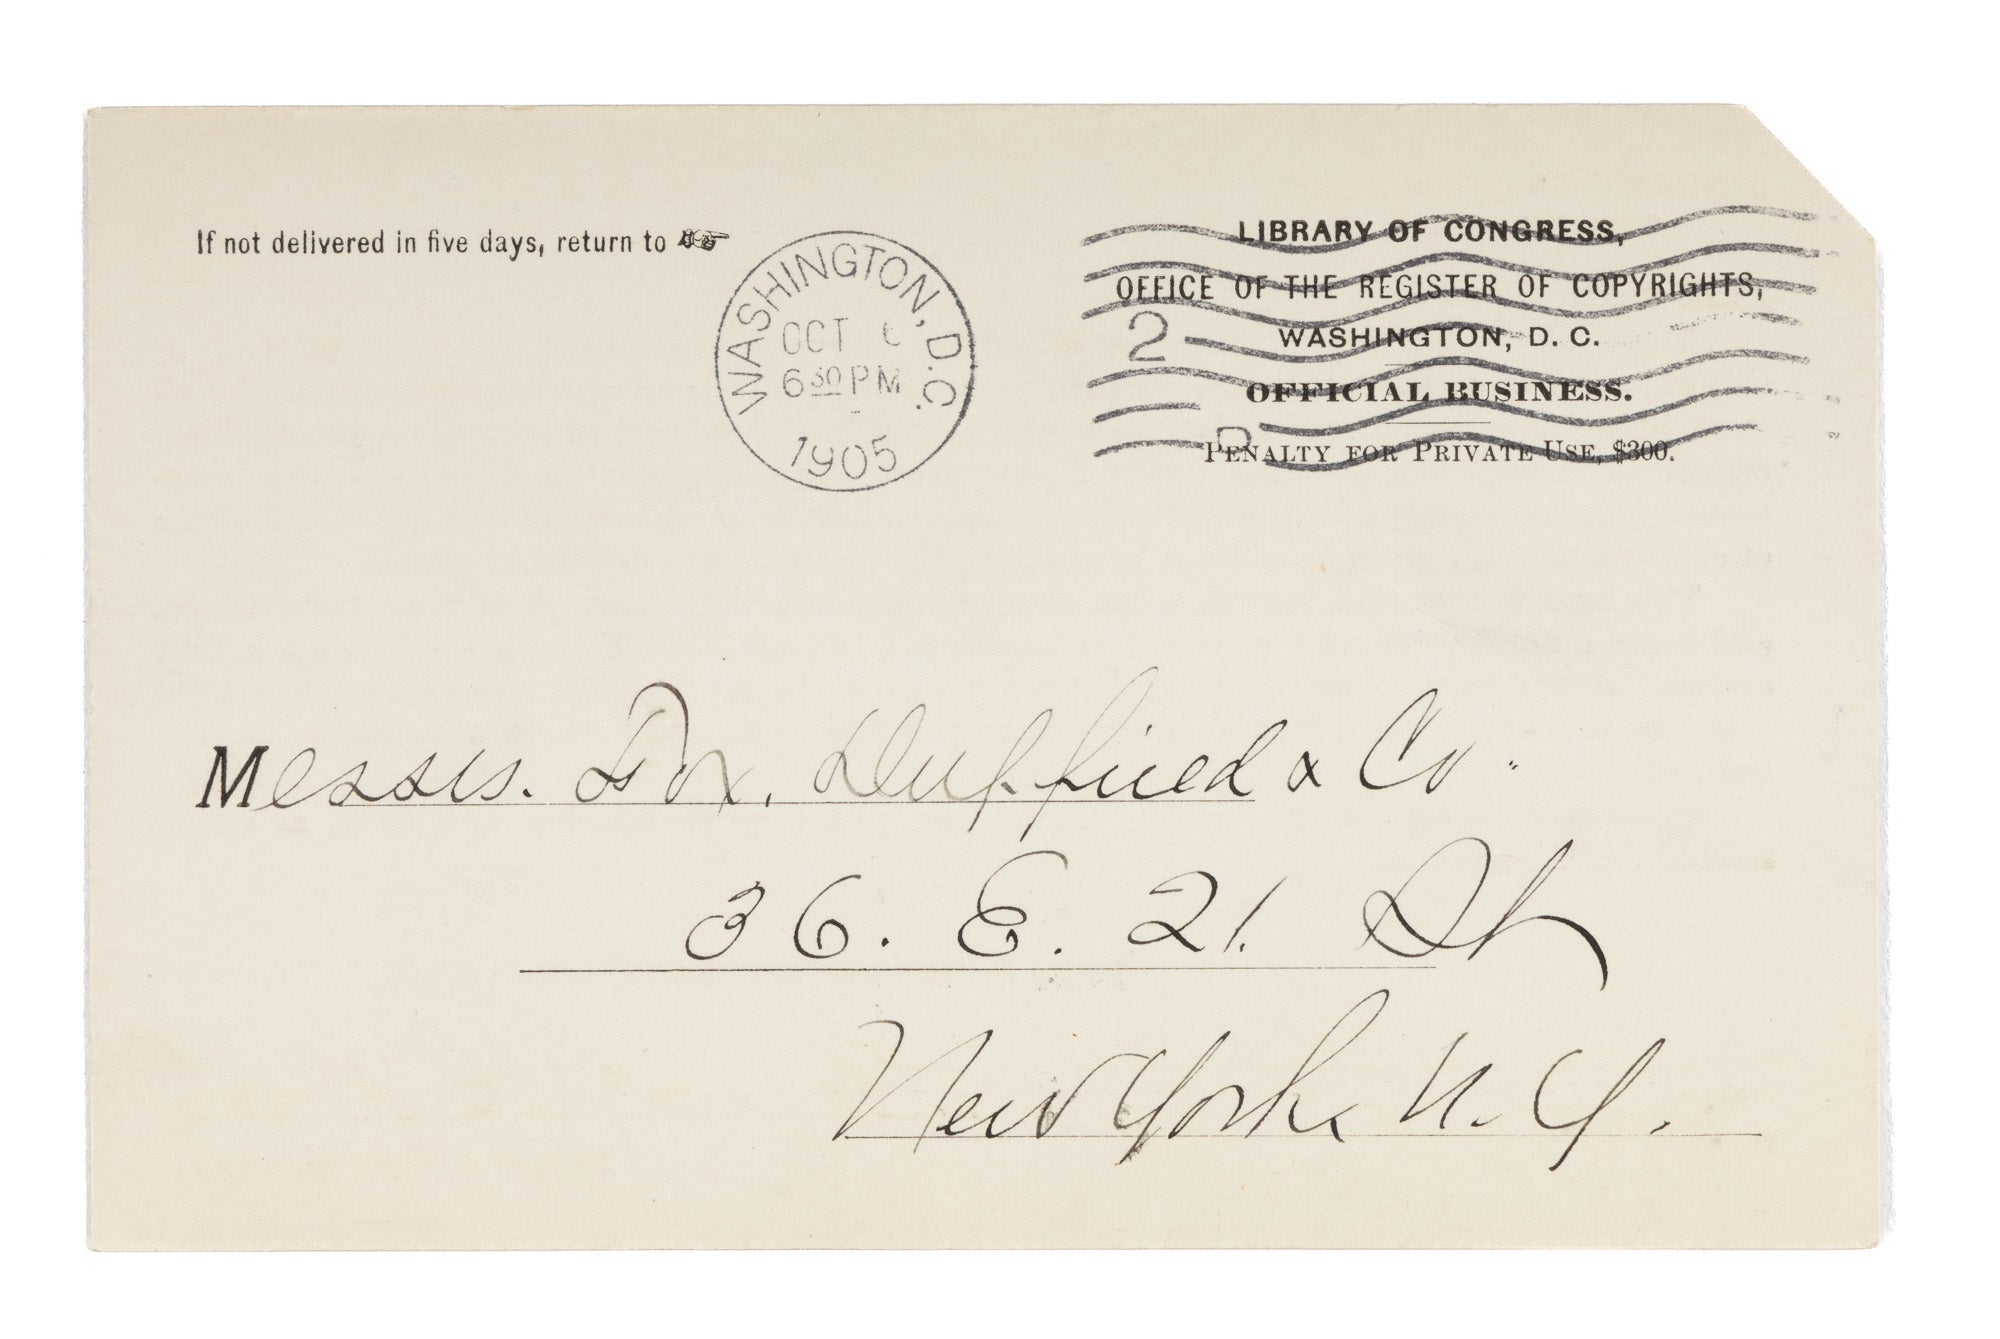 If not delivered in five days, return to
WASHINGTON, D.C.
OCT
6 30 PM
1905
LIBRARY OF CONGRESS,
OFFICE OF THE REGISTER OF COPYRIGHTS,
2
WASHINGTON, D. C.
OFFICIAL BUSINESS.
PENALTY FOR PRIVATE USE, $300.
D
Messrs. Fox, Duffield & Co.
36. E. 21. St
New York. N. Y.